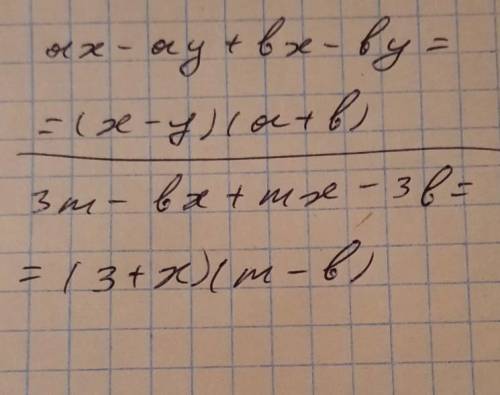 ax - ay + bx - by =
= (x - y)(a + b)
3m - bx + mx - 3b =
= (3 + x)(m - b)